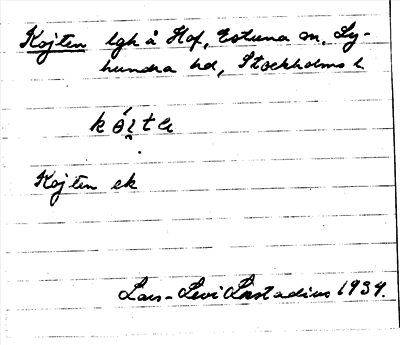 Kojten lgh å Hof, Estuna sn, Ly-
hundra hd, Stockholms l.
Kojten ek
Lars-Levi Læstadius 1934.